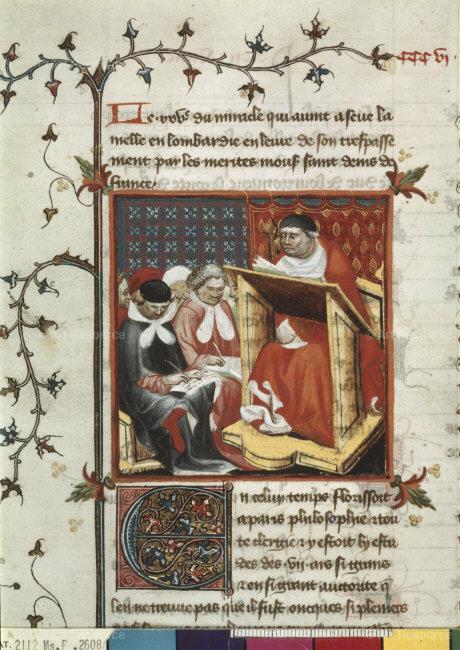 CCC vi
Le .v⁰ v⁹. du miracle qui avint a seue la
melle en lombardie en leure de son trespasse
ment par les merites mons saint denis de
france
En celuy temps florissoit
a paris philosophie z tou
te clergie z y estoit lestu
des des .vii. ars si grans
z en si grant autorite q̄
len ne treuve pas que il fust oncques si pleniers
AT. 2112 Ms. F. 2608